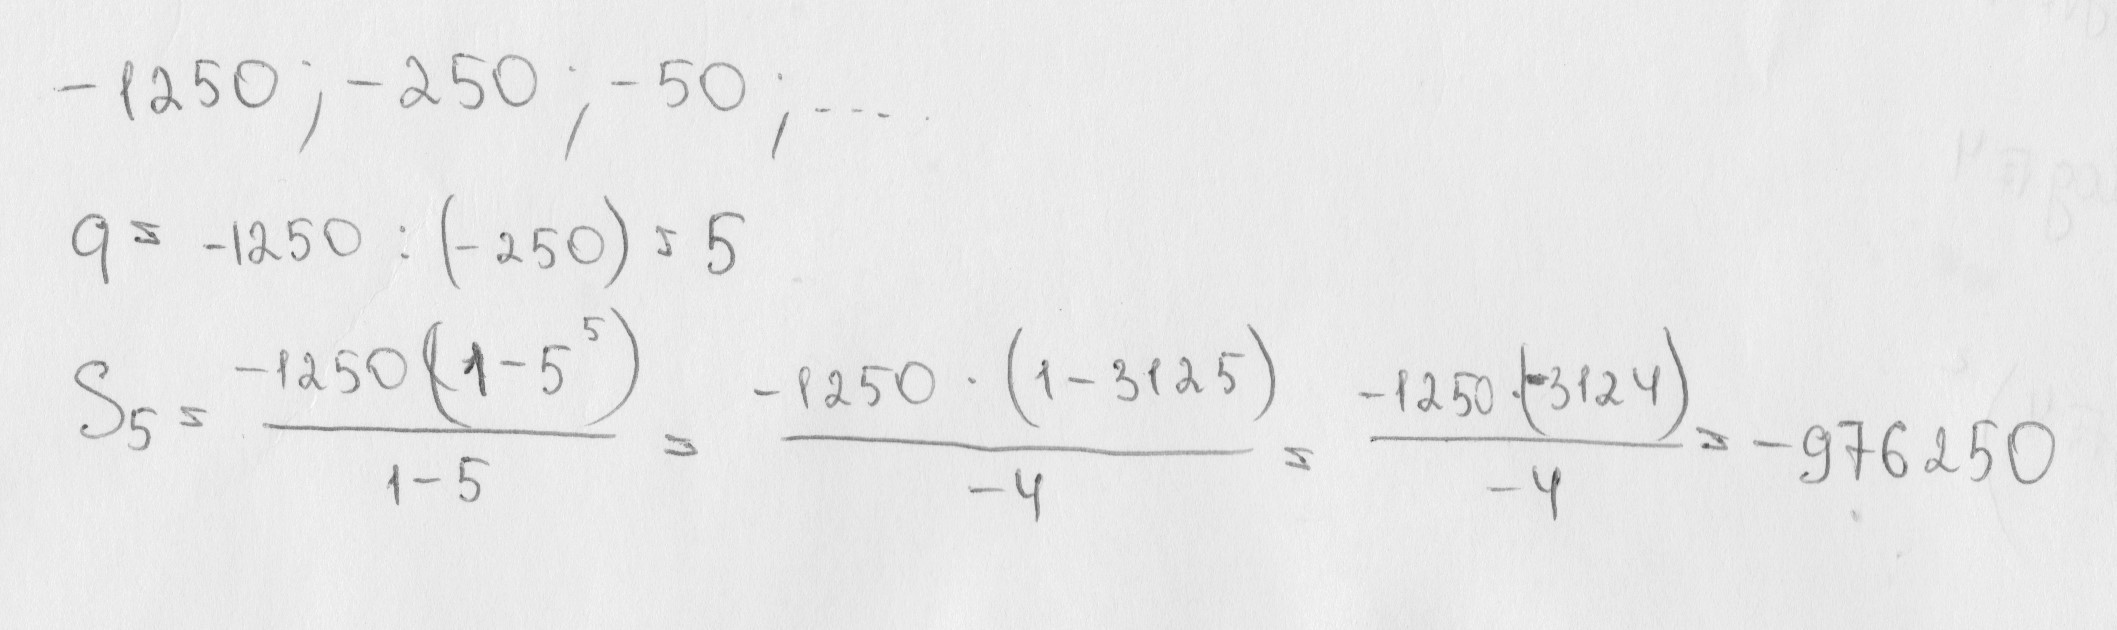 -1250; -250; -50; ....
q = -1250 : (-250) = 5
S₅ = \frac{-1250(1-5^5)}{1-5} = \frac{-1250 \cdot (1-3125)}{-4} = \frac{-1250 \cdot (-3124)}{-4} = -976250